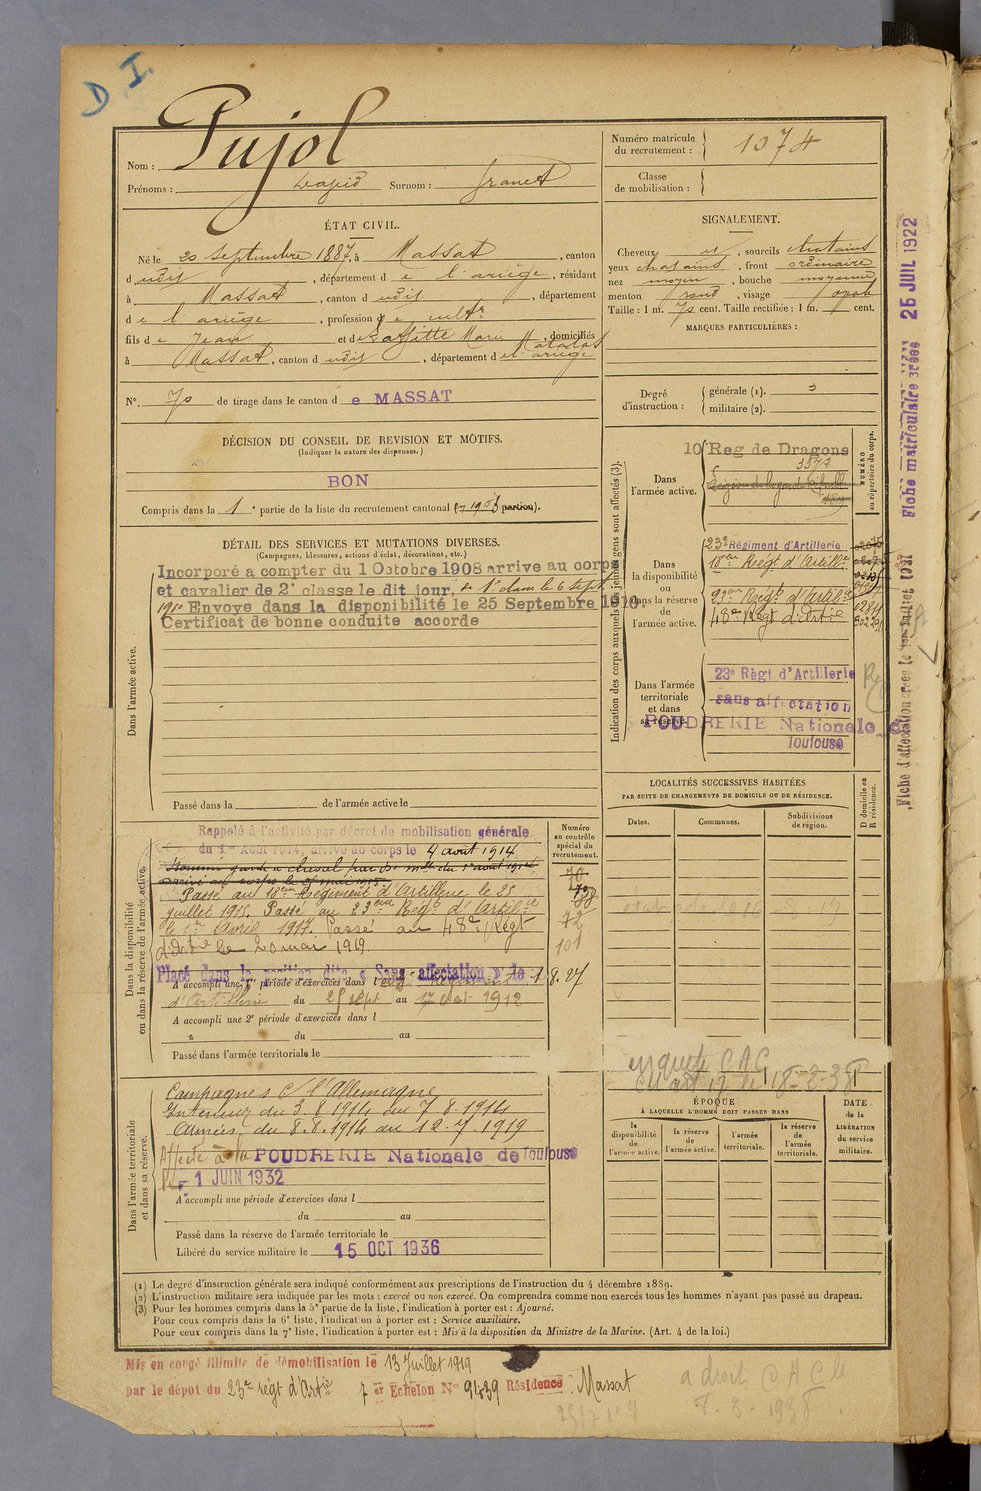 D I.
Pujol
Nom :
Prénoms : Surnom :
Numéro matricule
du recrutement : 1074
Classe
de mobilisation :
ÉTAT CIVIL.
Né le 20 septembre 1887, à Massat, canton
d udit, département de l'ariège, résidant
à Massat, canton d udit, département
de l'ariège, profession de cultr
fils de Jean et de Laffitte Marie, domiciliés
à Massat, canton d udit, département de l'ariège
N°. 70 de tirage dans le canton de MASSAT
SIGNALEMENT.
Cheveux et, sourcils chatains
yeux chatains, front ordinaire
nez moyen, bouche moyenne
menton rond, visage oval
Taille : 1 m. 70 cent. Taille rectifiée : 1 m. cent.
MARQUES PARTICULIÈRES :
Degré
d'instruction :
générale (1). 3
militaire (2).
DÉCISION DU CONSEIL DE REVISION ET MOTIFS.
(Indiquer la nature des dispenses.)
BON
Compris dans la 1e partie de la liste du recrutement cantonal
DÉTAIL DES SERVICES ET MUTATIONS DIVERSES.
(Campagnes, blessures, actions d'éclat, décorations, etc.)
Dans l'armée active.
Incorporé a compter du 1 Octobre 1908 arrive au corps
et cavalier de 2e classe le dit jour, de 1e classe le 6 sept
1910 Envoye dans la disponibilité le 25 Septembre 1910.
Certificat de bonne conduite accorde
Passé dans la de l'armée active le
Indication des corps auxquels les jeunes gens sont affectés (3).
NUMÉRO
au répertoire du corps.
Dans
l'armée active.
10 Reg de Dragons
3372
Dans
la disponibilité
ou
dans la réserve
de
l'armée active.
23e Régiment d'Artillerie
18ème Régt d'Artillie
23ème Régt d'Artilie
48e Régt d'Artie
Dans l'armée
territoriale
et dans
sa réserve.
23e Règt d'Artillerie
sans affectation
POUDRERIE Nationale de
Toulouse
LOCALITÉS SUCCESSIVES HABITÉES
PAR SUITE DE CHANGEMENTS DE DOMICILE OU DE RÉSIDENCE.
Dates.
Communes.
Subdivisions
de région.
D domicile ou
R résidence.
Dans la disponibilité
ou dans la réserve de l'armée active.
Numéro
au contrôle
spécial du
recrutement.
Rappelé à l'activité par décret de mobilisation générale
du 1er Août 1914, arrivé au corps le 4 août 1914
Passé au 18ème Régiment d'Artillerie le 25
juillet 1915. Passé au 23ème Régt d'Artilie
le 1er Avril 1917. Passé au 48e Régt
d'Artie le 20 mai 1919
72
101
Placé dans la position dite « Sans affectation » le 1.8.27
A accompli une 1e période d'exercices dans l
d'Artillerie du 25 sept au 17 oct 1912
A accompli une 2e période d'exercices dans l
du au
Passé dans l'armée territoriale le
enquete CAC
18-2-38
Dans l'armée territoriale
et dans sa réserve.
Campagnes c/ l'Allemagne
Intérieur du 3.8.1914 au 7.8.1914
Armées du 8.8.1914 au 12.7.1919
Affecté à la POUDRERIE Nationale de Toulouse
le 1 JUIN 1932
A accompli une période d'exercices dans l
du au
Passé dans la réserve de l'armée territoriale le
Libéré du service militaire le 15 OCT 1936
ÉPOQUE
À LAQUELLE L'HOMME DOIT PASSER DANS
la
disponibilité
de
l'armée active.
la réserve
de
l'armée active.
l'armée
territoriale.
la réserve
de
l'armée
territoriale.
DATE
de la
LIBÉRATION
du service
militaire.
(1) Le degré d'instruction générale sera indiqué conformément aux prescriptions de l'instruction du 4 décembre 1889.
(2) L'instruction militaire sera indiquée par les mots : exercé ou non exercé. On comprendra comme non exercés tous les hommes n'ayant pas passé au drapeau.
(3) Pour les hommes compris dans la 5e partie de la liste, l'indication à porter est : Ajourné.
Pour ceux compris dans la 6e liste, l'indication à porter est : Service auxiliaire.
Pour ceux compris dans la 7e liste, l'indication à porter est : Mis à la disposition du Ministre de la Marine. (Art. 4 de la loi.)
Mis en congé illimité de démobilisation le 13 Juillet 1919
par le dépôt du 23e régt d'Artie 7 er Echelon N° 9439 Résidence : Massat
a droit C A C le
8.3.1938
Fiche matriculaire créée 25 JUIL 1922
Fiche d'affectation créée le